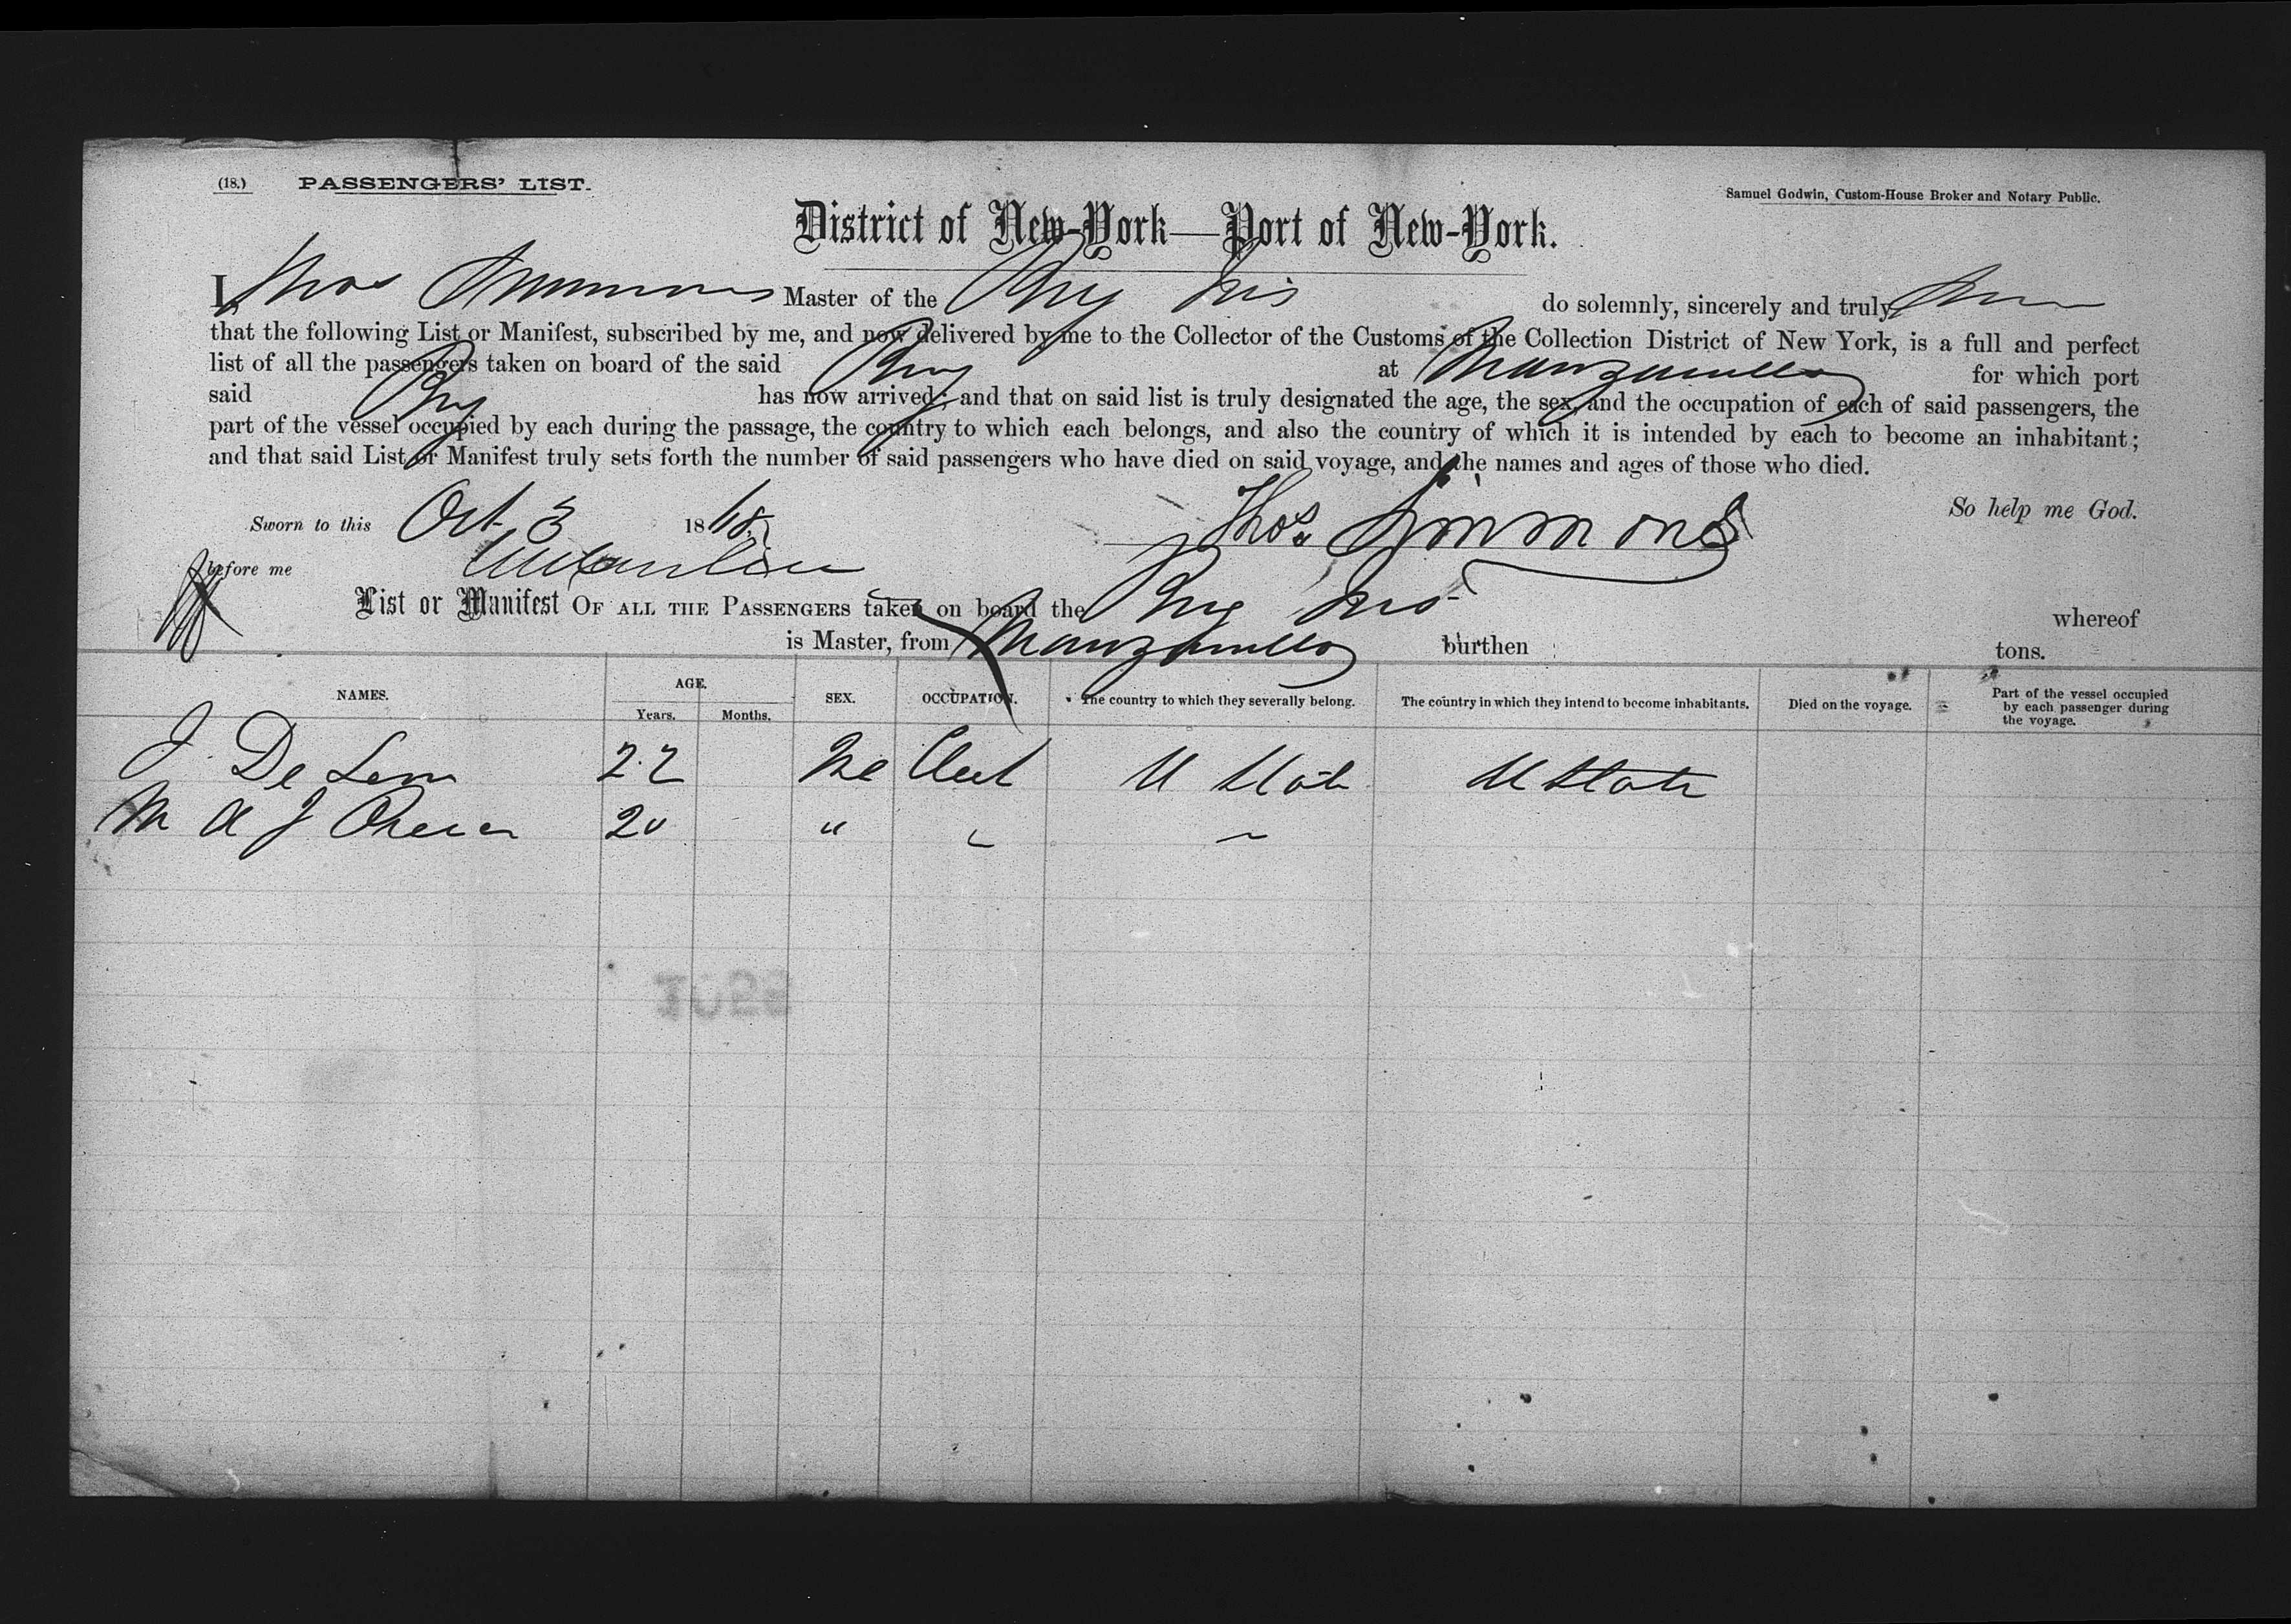 (18.) PASSENGERS' LIST.
Samuel Godwin, Custom-House Broker and Notary Public.
District of New-York—Port of New-York.
I, Thos Simmons Master of the Brig Iris do solemnly, sincerely and truly
that the following List or Manifest, subscribed by me, and now delivered by me to the Collector of the Customs of the Collection District of New York, is a full and perfect
list of all the passengers taken on board of the said Brig at Manzanillo for which port
said Brig has now arrived; and that on said list is truly designated the age, the sex, and the occupation of each of said passengers, the
part of the vessel occupied by each during the passage, the country to which each belongs, and also the country of which it is intended by each to become an inhabitant;
and that said List or Manifest truly sets forth the number of said passengers who have died on said voyage, and the names and ages of those who died.
So help me God.
Sworn to this Oct 3 1868 Thos. Simmons
before me
List or Manifest OF ALL THE PASSENGERS taken on board the Brig Iris whereof
is Master, from Manzanillo burthen tons.
NAMES. AGE. Years. Months. SEX. OCCUPATION. The country to which they severally belong. The country in which they intend to become inhabitants. Died on the voyage. Part of the vessel occupied by each passenger during the voyage.
J. De 22 U State U State
M A J 20 "